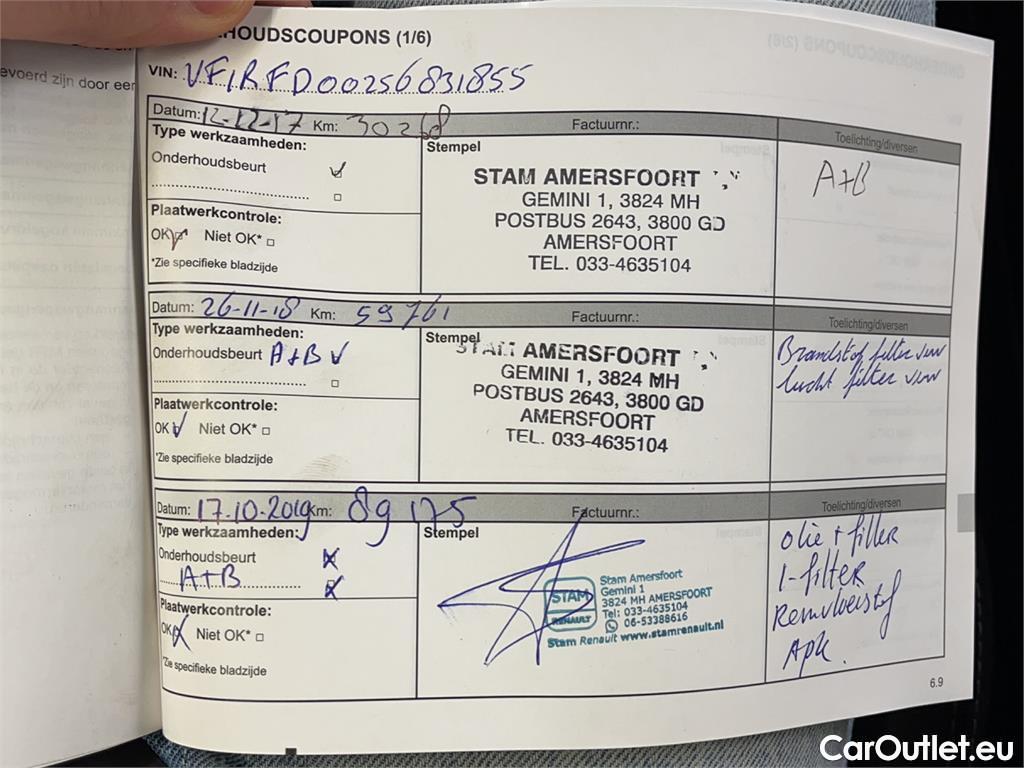 HOUDSCOUPONS (1/6)
evoerd zijn door een
VIN: VF1RFD00256831855
Datum: 12-12-17 Km: 30268 Factuurnr.: Toelichting/diversen
Type werkzaamheden:
Onderhoudsbeurt
Plaatwerkcontrole:
OK Niet OK*
*Zie specifieke bladzijde
Stempel
STAM AMERSFOORT
GEMINI 1, 3824 MH
POSTBUS 2643, 3800 GD
AMERSFOORT
TEL. 033-4635104
A+B
Datum: 26-11-18 Km: 59761 Factuurnr.: Toelichting/diversen
Type werkzaamheden:
Onderhoudsbeurt A+B
Plaatwerkcontrole:
OK Niet OK*
*Zie specifieke bladzijde
Stempel
STAM AMERSFOORT
GEMINI 1, 3824 MH
POSTBUS 2643, 3800 GD
AMERSFOORT
TEL. 033-4635104
Brandstof filter vvw
lucht filter vvw
Datum: 17.10.2019 Km: 89175 Factuurnr.: Toelichting/diversen
Type werkzaamheden:
Onderhoudsbeurt
A+B
Plaatwerkcontrole:
OK Niet OK*
*Zie specifieke bladzijde
Stempel
STAM
RENAULT
Stam Amersfoort
Gemini 1
3824 MH AMERSFOORT
Tel: 033-4635104
06-53388616
Stam Renault www.stamrenault.nl
olie + filter
I-filter
Remvloeistof
Apk.
6.9
CarOutlet.eu